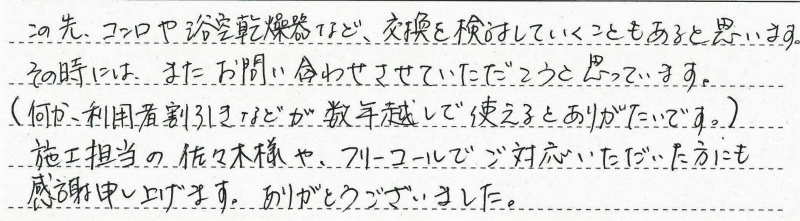 この先、コンロや浴室乾燥器など、交換を検討していくこともあると思います。
その時には、またお問い合わせさせていただこうと思っています。
(何か、利用者割引きなどが数年越しで使えるとありがたいです。)
施工担当の佐々木様や、フリーコールでご対応いただいた方にも
感謝申し上げます。ありがとうございました。